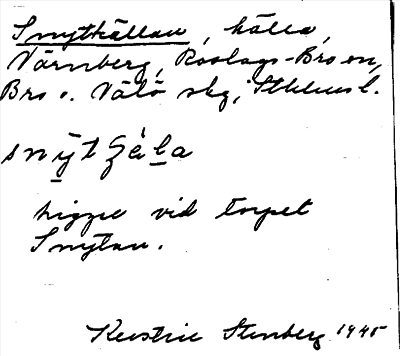 Snytkällan, källa,
Värnberg, Roslags-Bro sn,
Bro o. Vätö skg, Sthlms l.
snỳtʒè̀la
ligger vid torpet
Snytan.
Kerstin Stenberg 1945